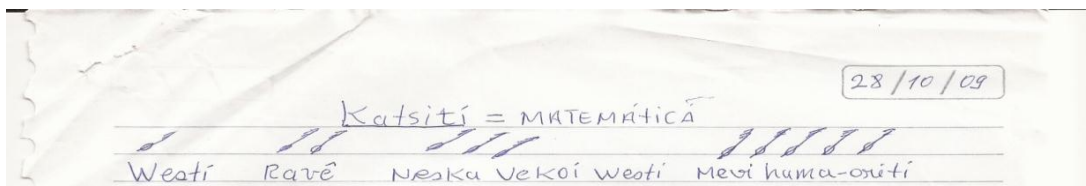 28/10/09
Katsití = MATEMÁTICA
Westí Ravê Neska Vekoi Westi Mevi huma-oriti